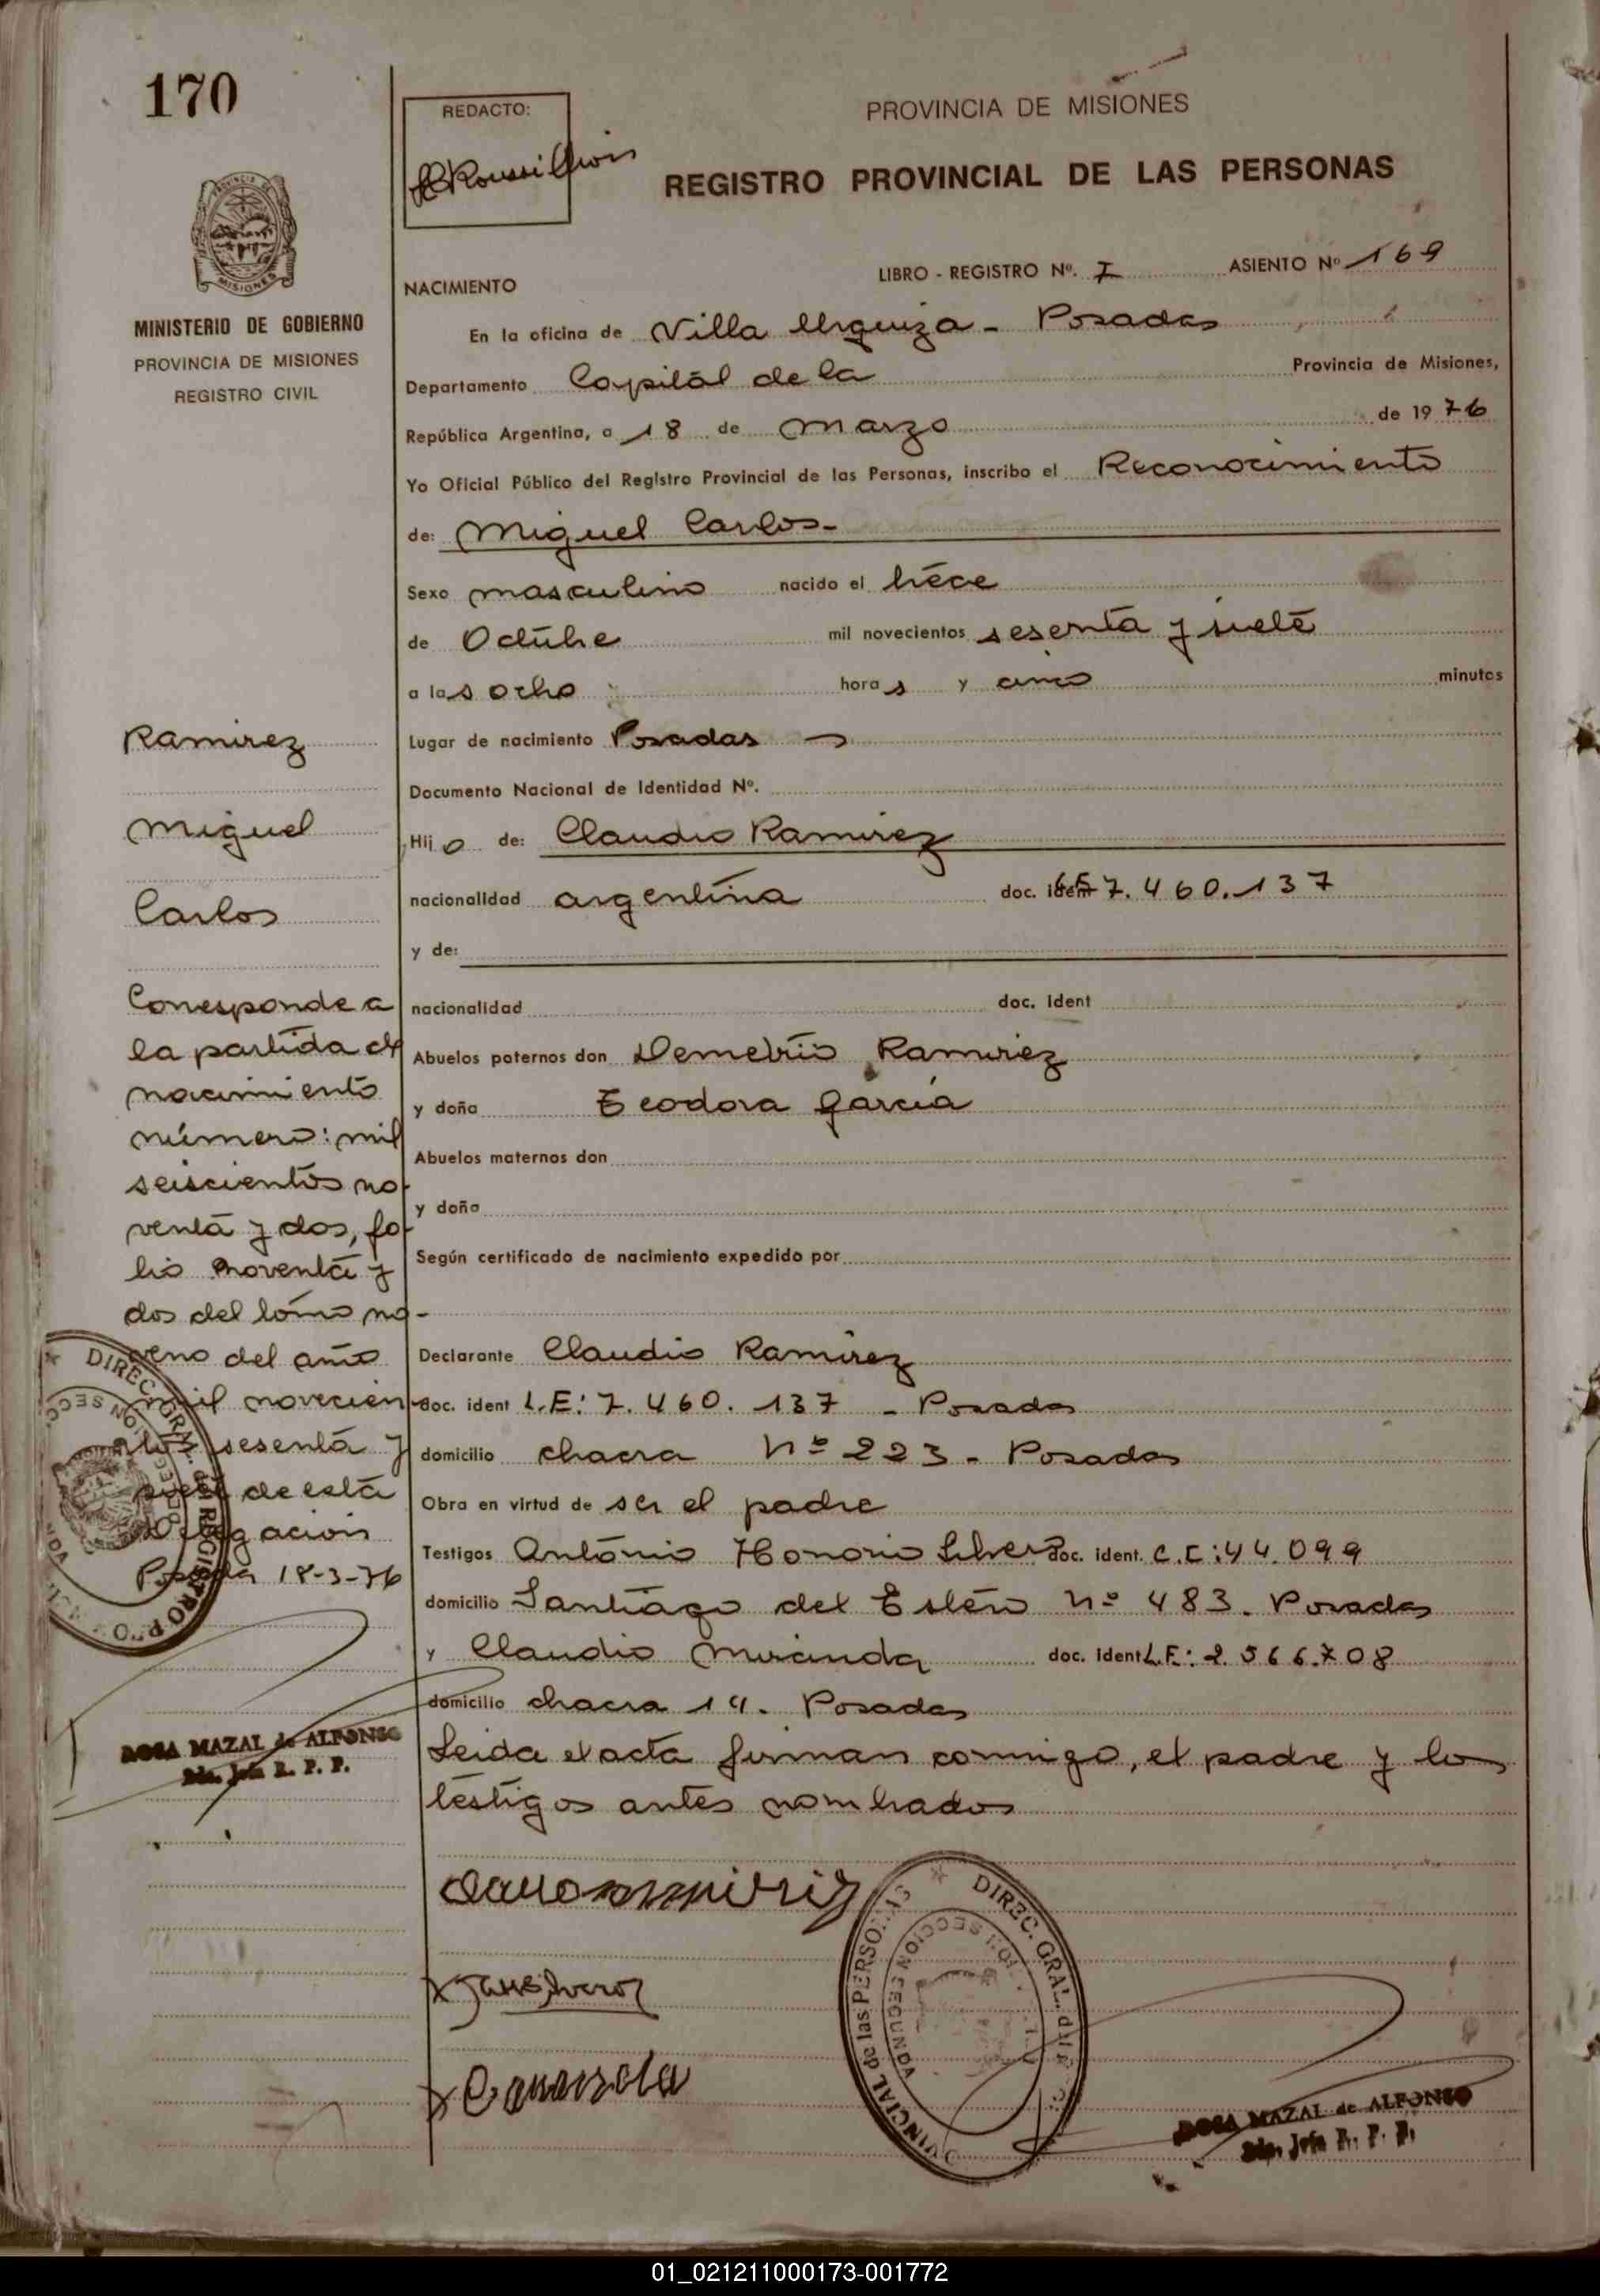 170
REDACTO:
PROVINCIA DE MISIONES
REGISTRO PROVINCIAL DE LAS PERSONAS
MISIONES
MINISTERIO DE GOBIERNO
PROVINCIA DE MISIONES
REGISTRO CIVIL
LIBRO - REGISTRO Nº. I ASIENTO Nº 169
NACIMIENTO
En la oficina de Villa Urquiza - Posadas
Departamento Capital de la Provincia de Misiones,
República Argentina, a 18 de Marzo de 1976
Yo Oficial Público del Registro Provincial de las Personas, inscribo el Reconocimiento
de: Miguel Carlos-
Sexo masculino nacido el trece
de Octubre mil novecientos sesenta y siete
a las ocho horas y cinco minutos
Lugar de nacimiento Posadas
Documento Nacional de Identidad Nº.
Hijo de: Claudio Ramirez
nacionalidad argentina doc. ident 7.460.137
y de:
nacionalidad doc. ident
Abuelos paternos don Demetrio Ramirez
y doña Teodora Garcia
Abuelos maternos don
y doña
Según certificado de nacimiento expedido por
Declarante Claudio Ramirez
doc. ident L.E: 7.460.137 - Posadas
domicilio chacra Nº 223 - Posadas
Obra en virtud de ser el padre
Testigos Antonio Honorio Silvero doc. ident. C.I:44.099
domicilio Santiago del Estero Nº 483. Posadas
y Claudio Miranda doc. ident L.E: 2.566.708
domicilio chacra 14. Posadas
Leida el acta firman conmigo, el padre y los
testigos antes nombrados
Ramirez
Miguel
Carlos
Corresponde a
la partida de
nacimiento
número: mil
seiscientos no-
venta y dos, fo-
lio noventa y
dos del tomo no-
veno del año
mil novecien-
tos sesenta y
siete de esta
Delegación
Posadas 18-3-76
ROSA MAZAL de ALFONSO
Sda. Jefa R. P. P.
DIREC. GRAL. del REGISTRO PROVINCIAL de las PERSONAS
SECCION SEGUNDA
ROSA MAZAL de ALFONSO
Sda. Jefa R. P. P.
01_021211000173-001772